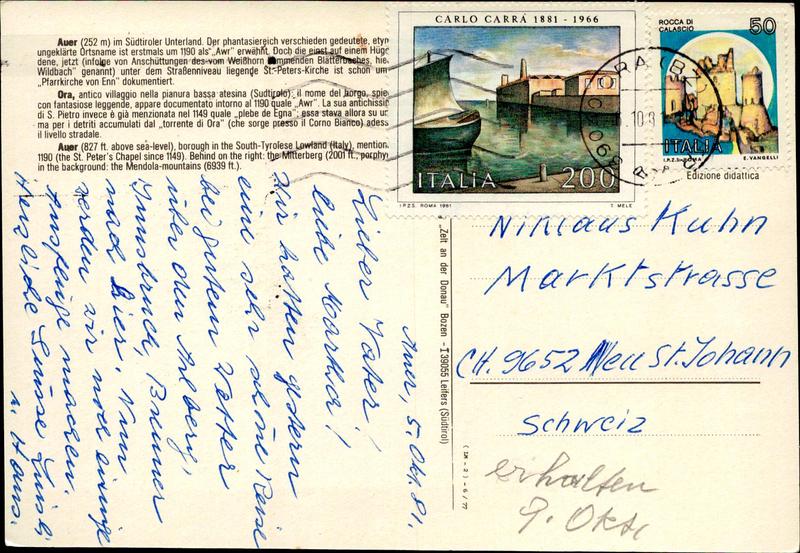 Auer (252 m) im Südtiroler Unterland. Der phantasiereich verschieden gedeutete, etym
ungeklärte Ortsname ist erstmals um 1190 als "Awr" erwähnt. Doch die einst auf einem Hüge
dene, jetzt (infolge von Anschüttungen des vom Weißhorn kommenden Blätterbaches, hie
Wildbach" genannt) unter dem Straßenniveau liegende St.-Peters-Kirche ist schon um
"Pfarrkirche von Enn" dokumentiert.
Ora, antico villaggio nella pianura bassa atesina (Sudtirolo); il nome del borgo, spie
con fantasiose leggende, appare documentato intorno al 1190 quale "Awr". La sua antichissi
di S. Pietro invece è già menzionata nel 1149 quale „plebe de Egna"; essa stava allora su ur
ma per i detriti accumulati dal „torrente di Ora" (che sorge presso il Corno Bianco) adess
il livello stradale.
Auer (827 ft. above sea-level), borough in the South-Tyrolese Lowland (Italy), mention
1190 (the St. Peter's Chapel since 1149). Behind on the right: the Mitterberg (2001 ft., porphyr
in the background: the Mendola-mountains (6939 ft.).
CARLO CARRÀ 1881 - 1966
ITALIA 200
I.P.Z.S. ROMA 1981
T. MELE
ROCCA DI
CALASCIO
50
ITALIA
I.P.Z.S. ROMA
E. VANGELLI
Edizione didattica
Auer, 5. Okt. 81.
Lieber Vater!
liebe Martha!
Wir hatten gestern
eine sehr schöne Reise
bei gutem Wetter
über den Arlberg,
Innsbruck, Brenner
nach hier. Nun
werden wir noch einige
Ausflüge machen.
Herzliche Grüsse
u. Hans.
"Zelt an der Donau" Bozen - I 39055 Leifers (Südtirol)
Niklaus Kuhn
Marktstrasse
CH. 9652 Neu St. Johann
Schweiz
erhalten
9. Okt.